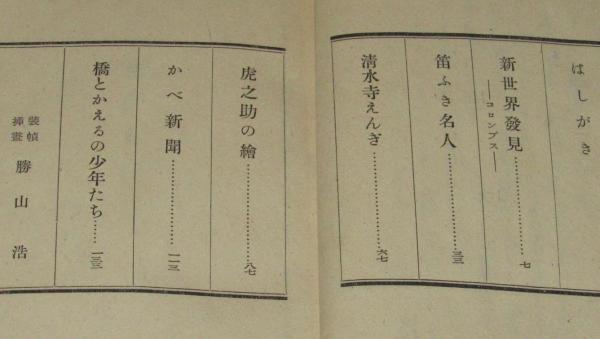 はしがき
新世界發見……………七
――コロンブス――
笛ふき名人……………三三
清水寺えんぎ……………六七
虎之助の繪……………八七
かべ新聞……………一一三
橋とかえるの少年たち……一三三
裝幀
挿畫
勝山浩